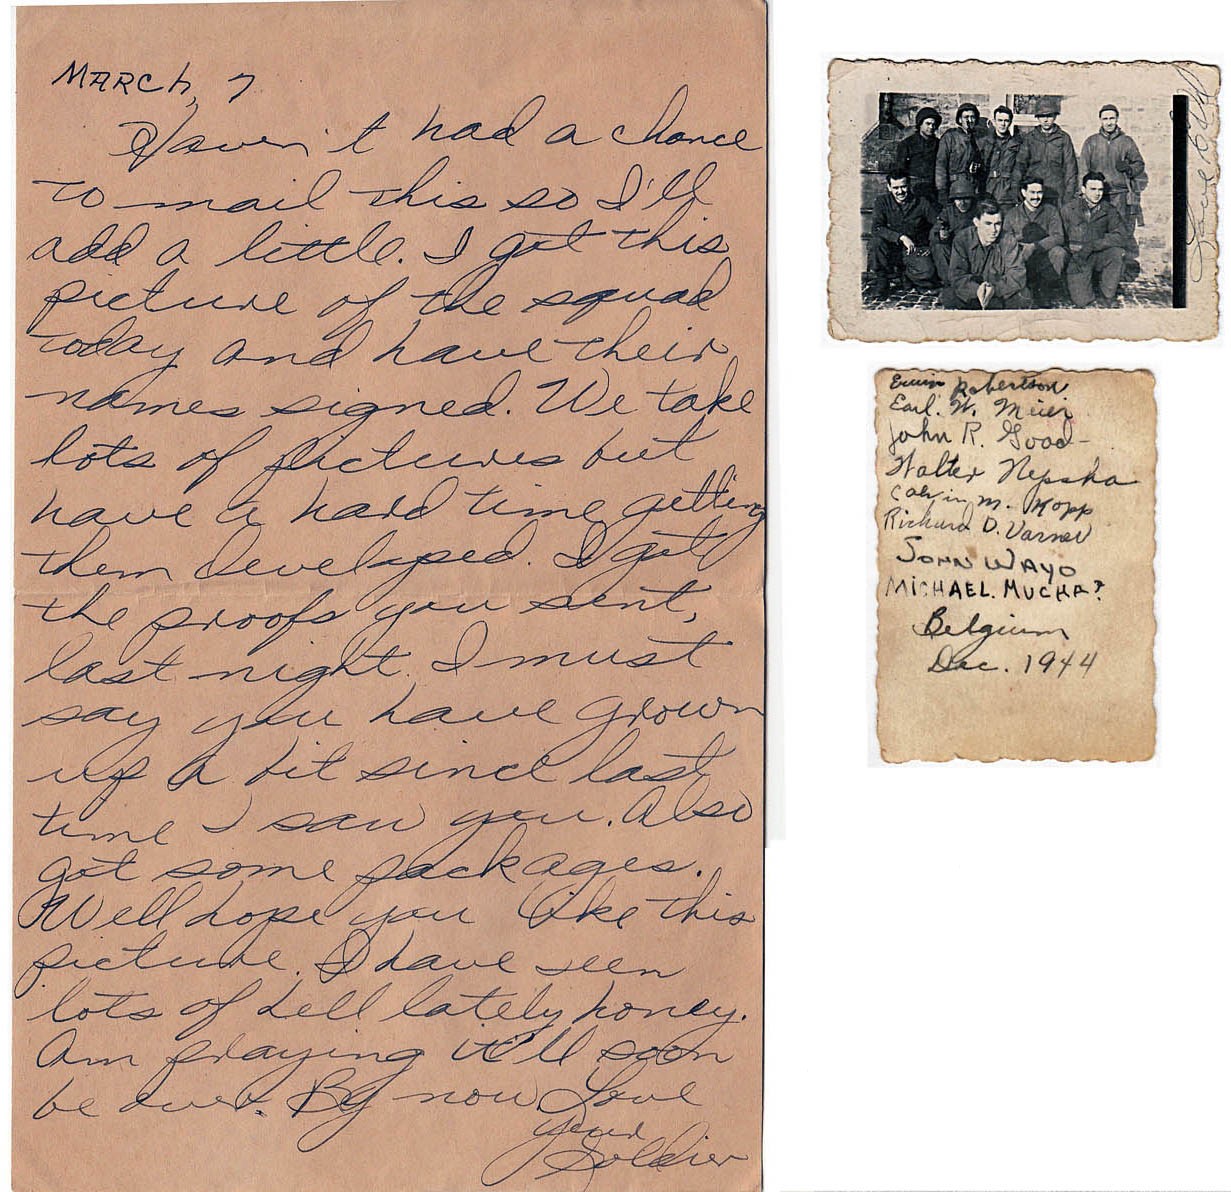 MARCH, 7
Haven't had a chance
to mail this so I'll
add a little. I got this
picture of the squad
today and have their
names signed. We take
lots of pictures but
have a hard time getting
them developed. I got
the proofs you sent,
last night. I must
say you have grown
up a bit since last
time I saw you. Also
got some packages.
Well hope you like this
picture. I have seen
lots of hell lately honey.
Am praying it'll soon
be over. By now Love
Your
Soldier
Love
Robertson
Earl. W. Meier
John R. Good
Walter Nepsha
Calvin M. Kopp
Richard D. Varner
JOHN WAYO
MICHAEL. MUCHA?
Belgium
Dec. 1944